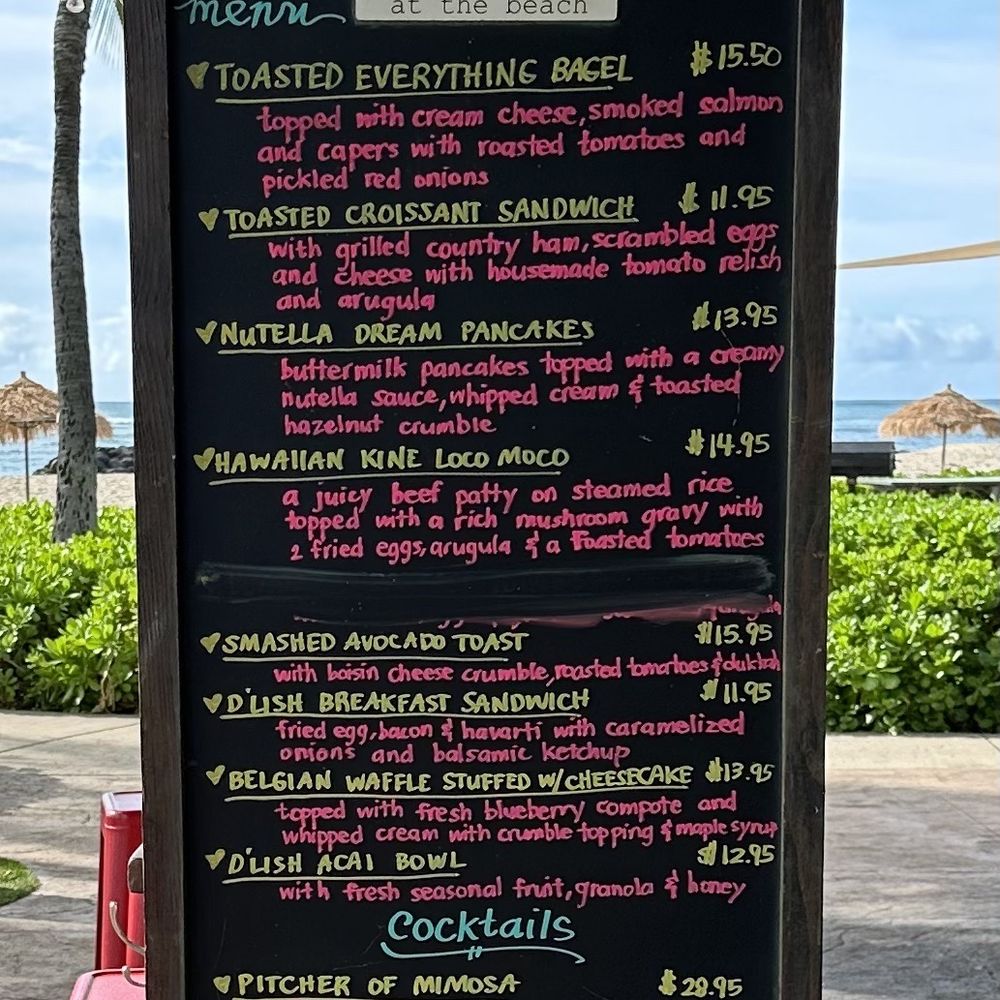 menu
at the beach
TOASTED EVERYTHING BAGEL $15.50
topped with cream cheese, smoked salmon
and capers with roasted tomatoes and
pickled red onions
TOASTED CROISSANT SANDWICH $11.95
with grilled country ham, scrambled eggs
and cheese with housemade tomato relish
and arugula
NUTELLA DREAM PANCAKES $13.95
buttermilk pancakes topped with a creamy
nutella sauce, whipped cream & toasted
hazelnut crumble
HAWAIIAN KINE LOCO MOCO $14.95
a juicy beef patty on steamed rice
topped with a rich mushroom gravy with
2 fried eggs, arugula & a roasted tomatoes
SMASHED AVOCADO TOAST $15.95
with boisin cheese crumble, roasted tomatoes & dukkah
D'LISH BREAKFAST SANDWICH $11.95
fried egg, bacon & havarti with caramelized
onions and balsamic ketchup
BELGIAN WAFFLE STUFFED W/CHEESECAKE $13.95
topped with fresh blueberry compote and
whipped cream with crumble topping & maple syrup
D'LISH ACAI BOWL $12.95
with fresh seasonal fruit, granola & honey
Cocktails
PITCHER OF MIMOSA $29.95